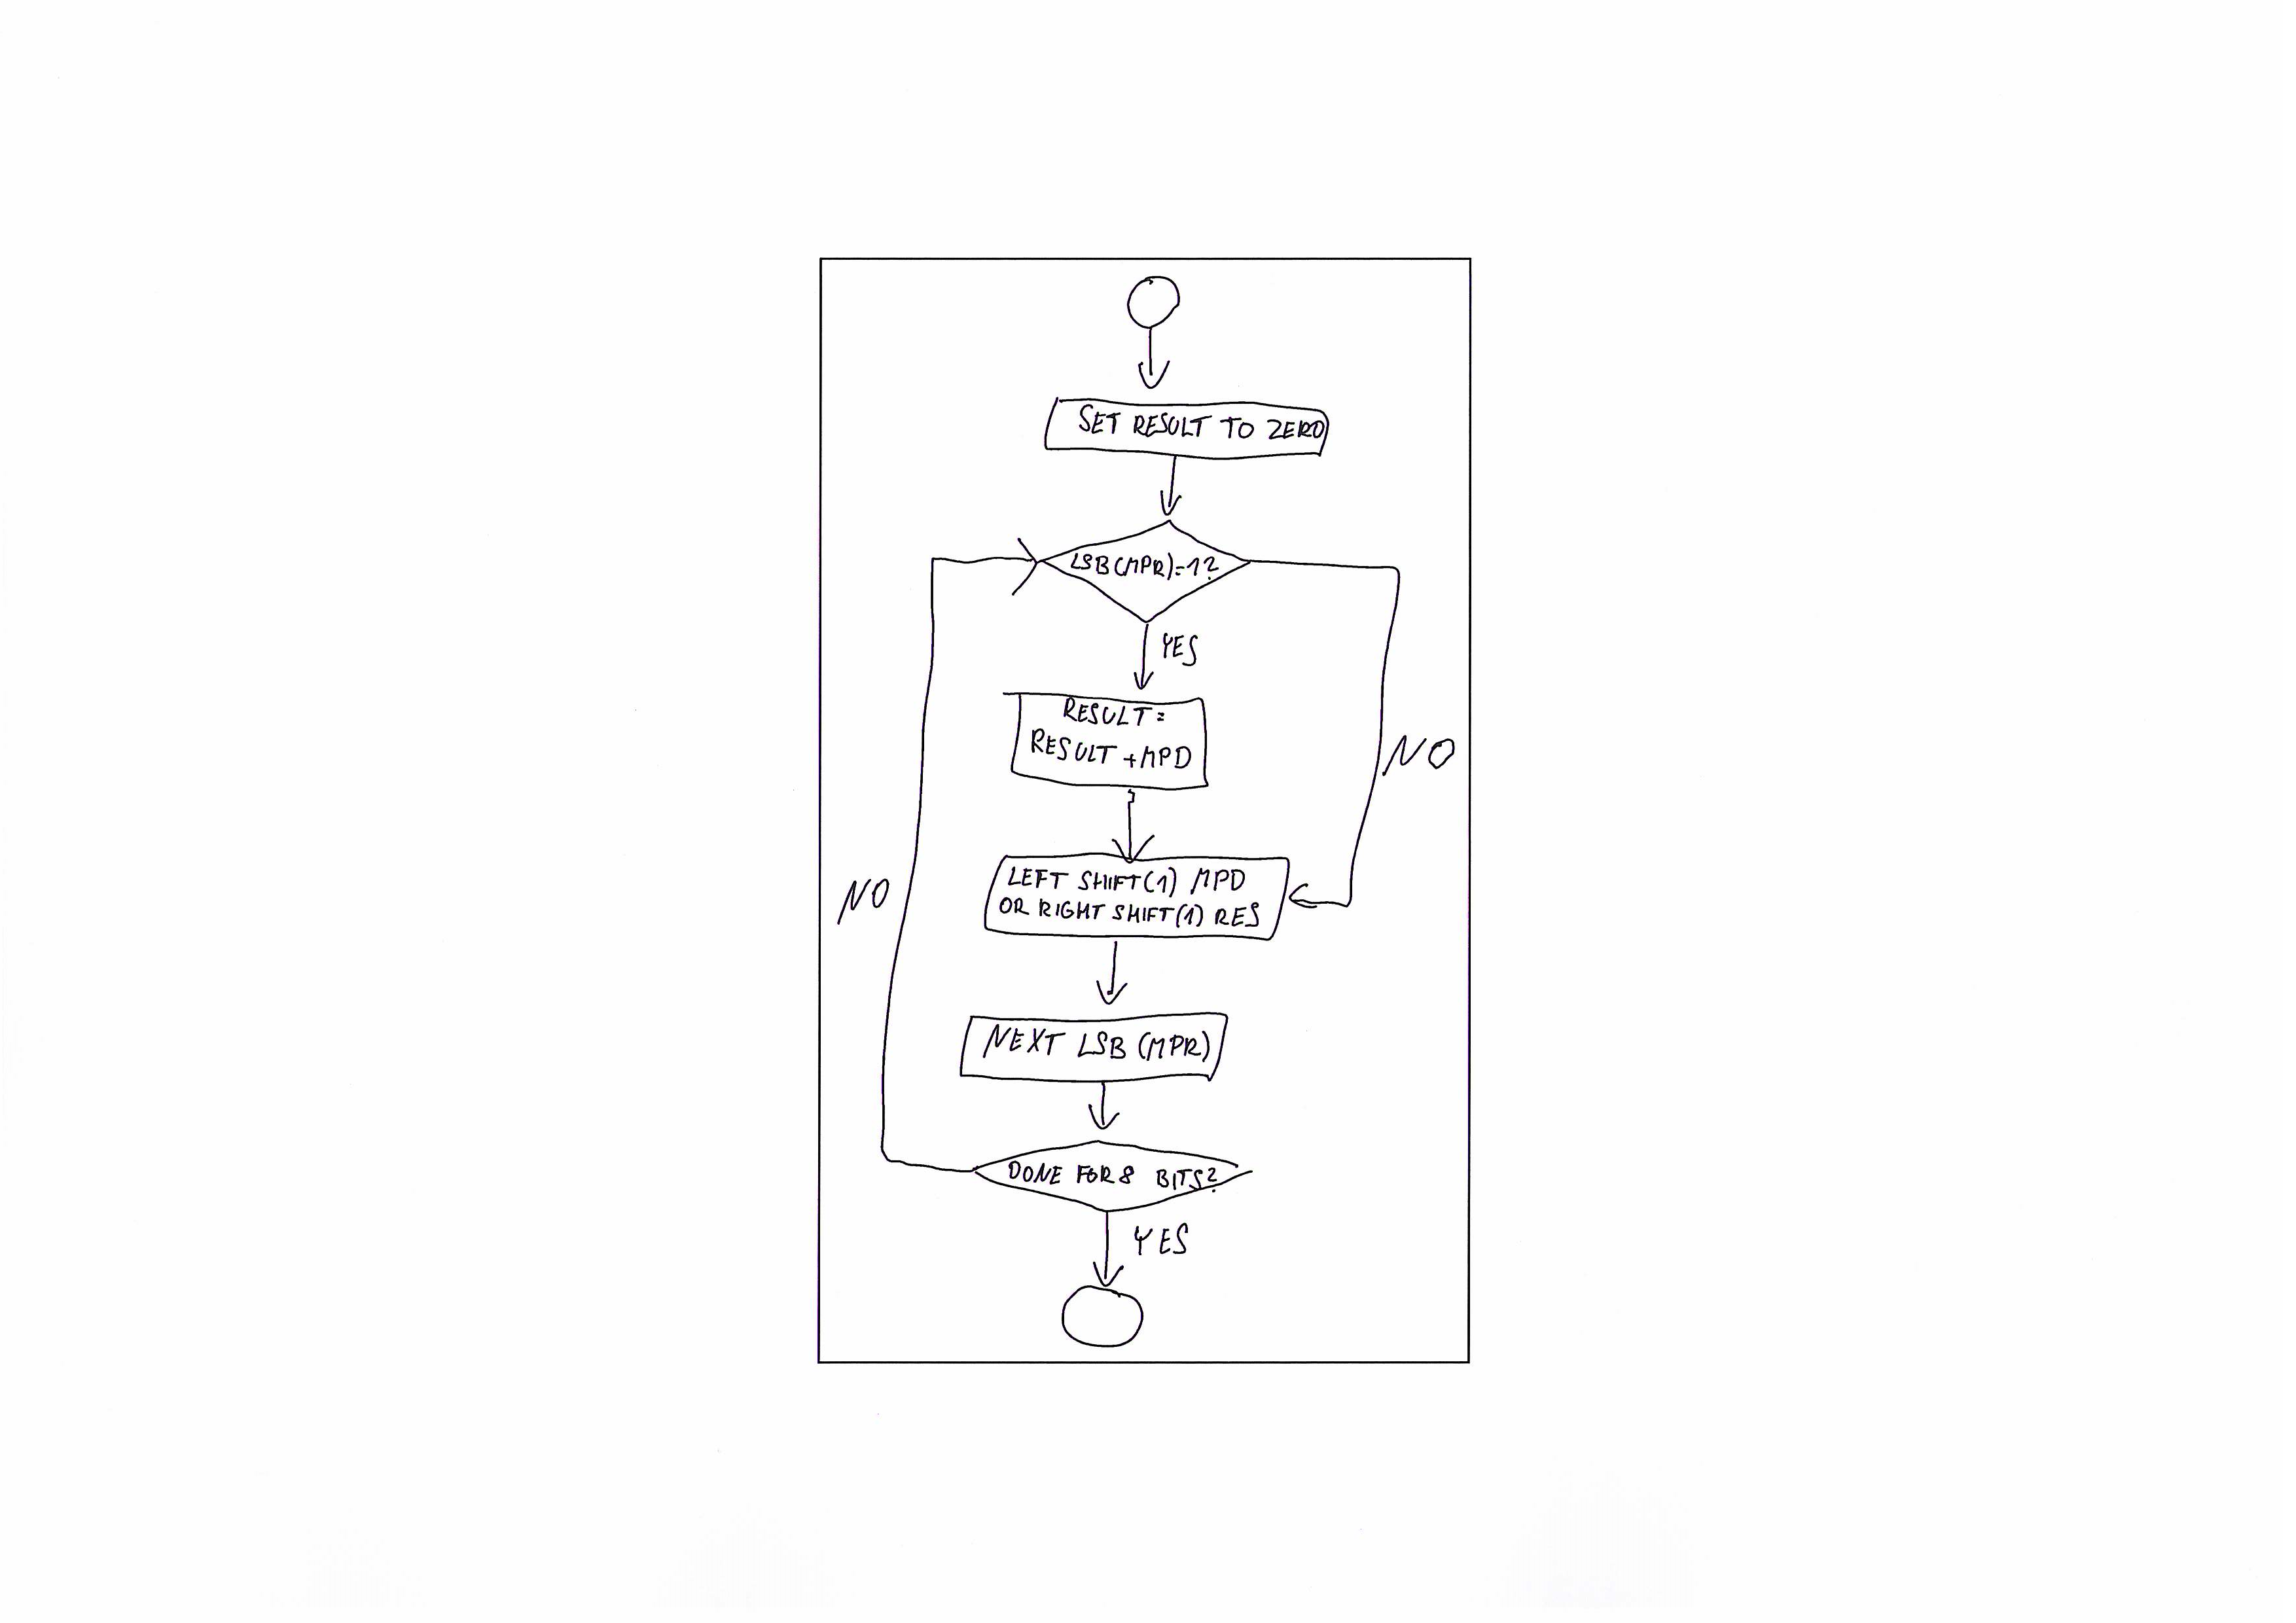 SET RESULT TO ZERO
LSB(MPR)=1?
YES
RESULT=
RESULT+MPD
NO
LEFT SHIFT(1) MPD
OR RIGHT SHIFT(1) RES
NO
NEXT LSB (MPR)
DONE FOR 8 BITS?
YES